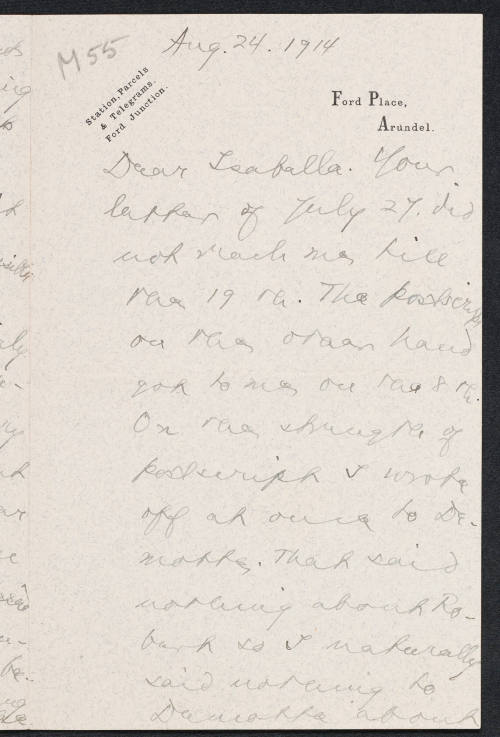 M 55
Aug. 24. 1914
Station, Parcels
& Telegrams.
Ford Junction.
Ford Place,
Arundel.
Dear Isabella. Your
letter of July 27. did
not reach me till
the 19 th. The postscript
on the other hand
got to me on the 8 th.
On the strength of
postscript I wrote
off at once to De-
motte. That said
nothing about Ro-
bert so I naturally
said nothing to
Demotte about